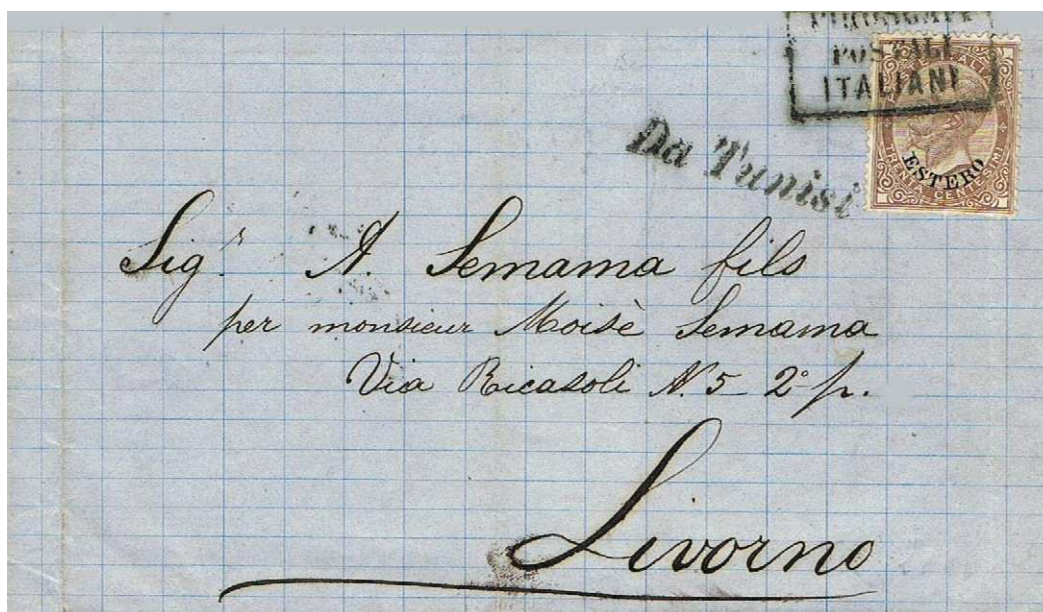 PIROSCAFI
POSTALI
ITALIANI
ESTERO
TRENTA CENTESIMI
Da Tunisi
Sigr. A. Semama fils
per monsieur Moisè Semama
Via Ricasoli N. 5 2° p.
Livorno